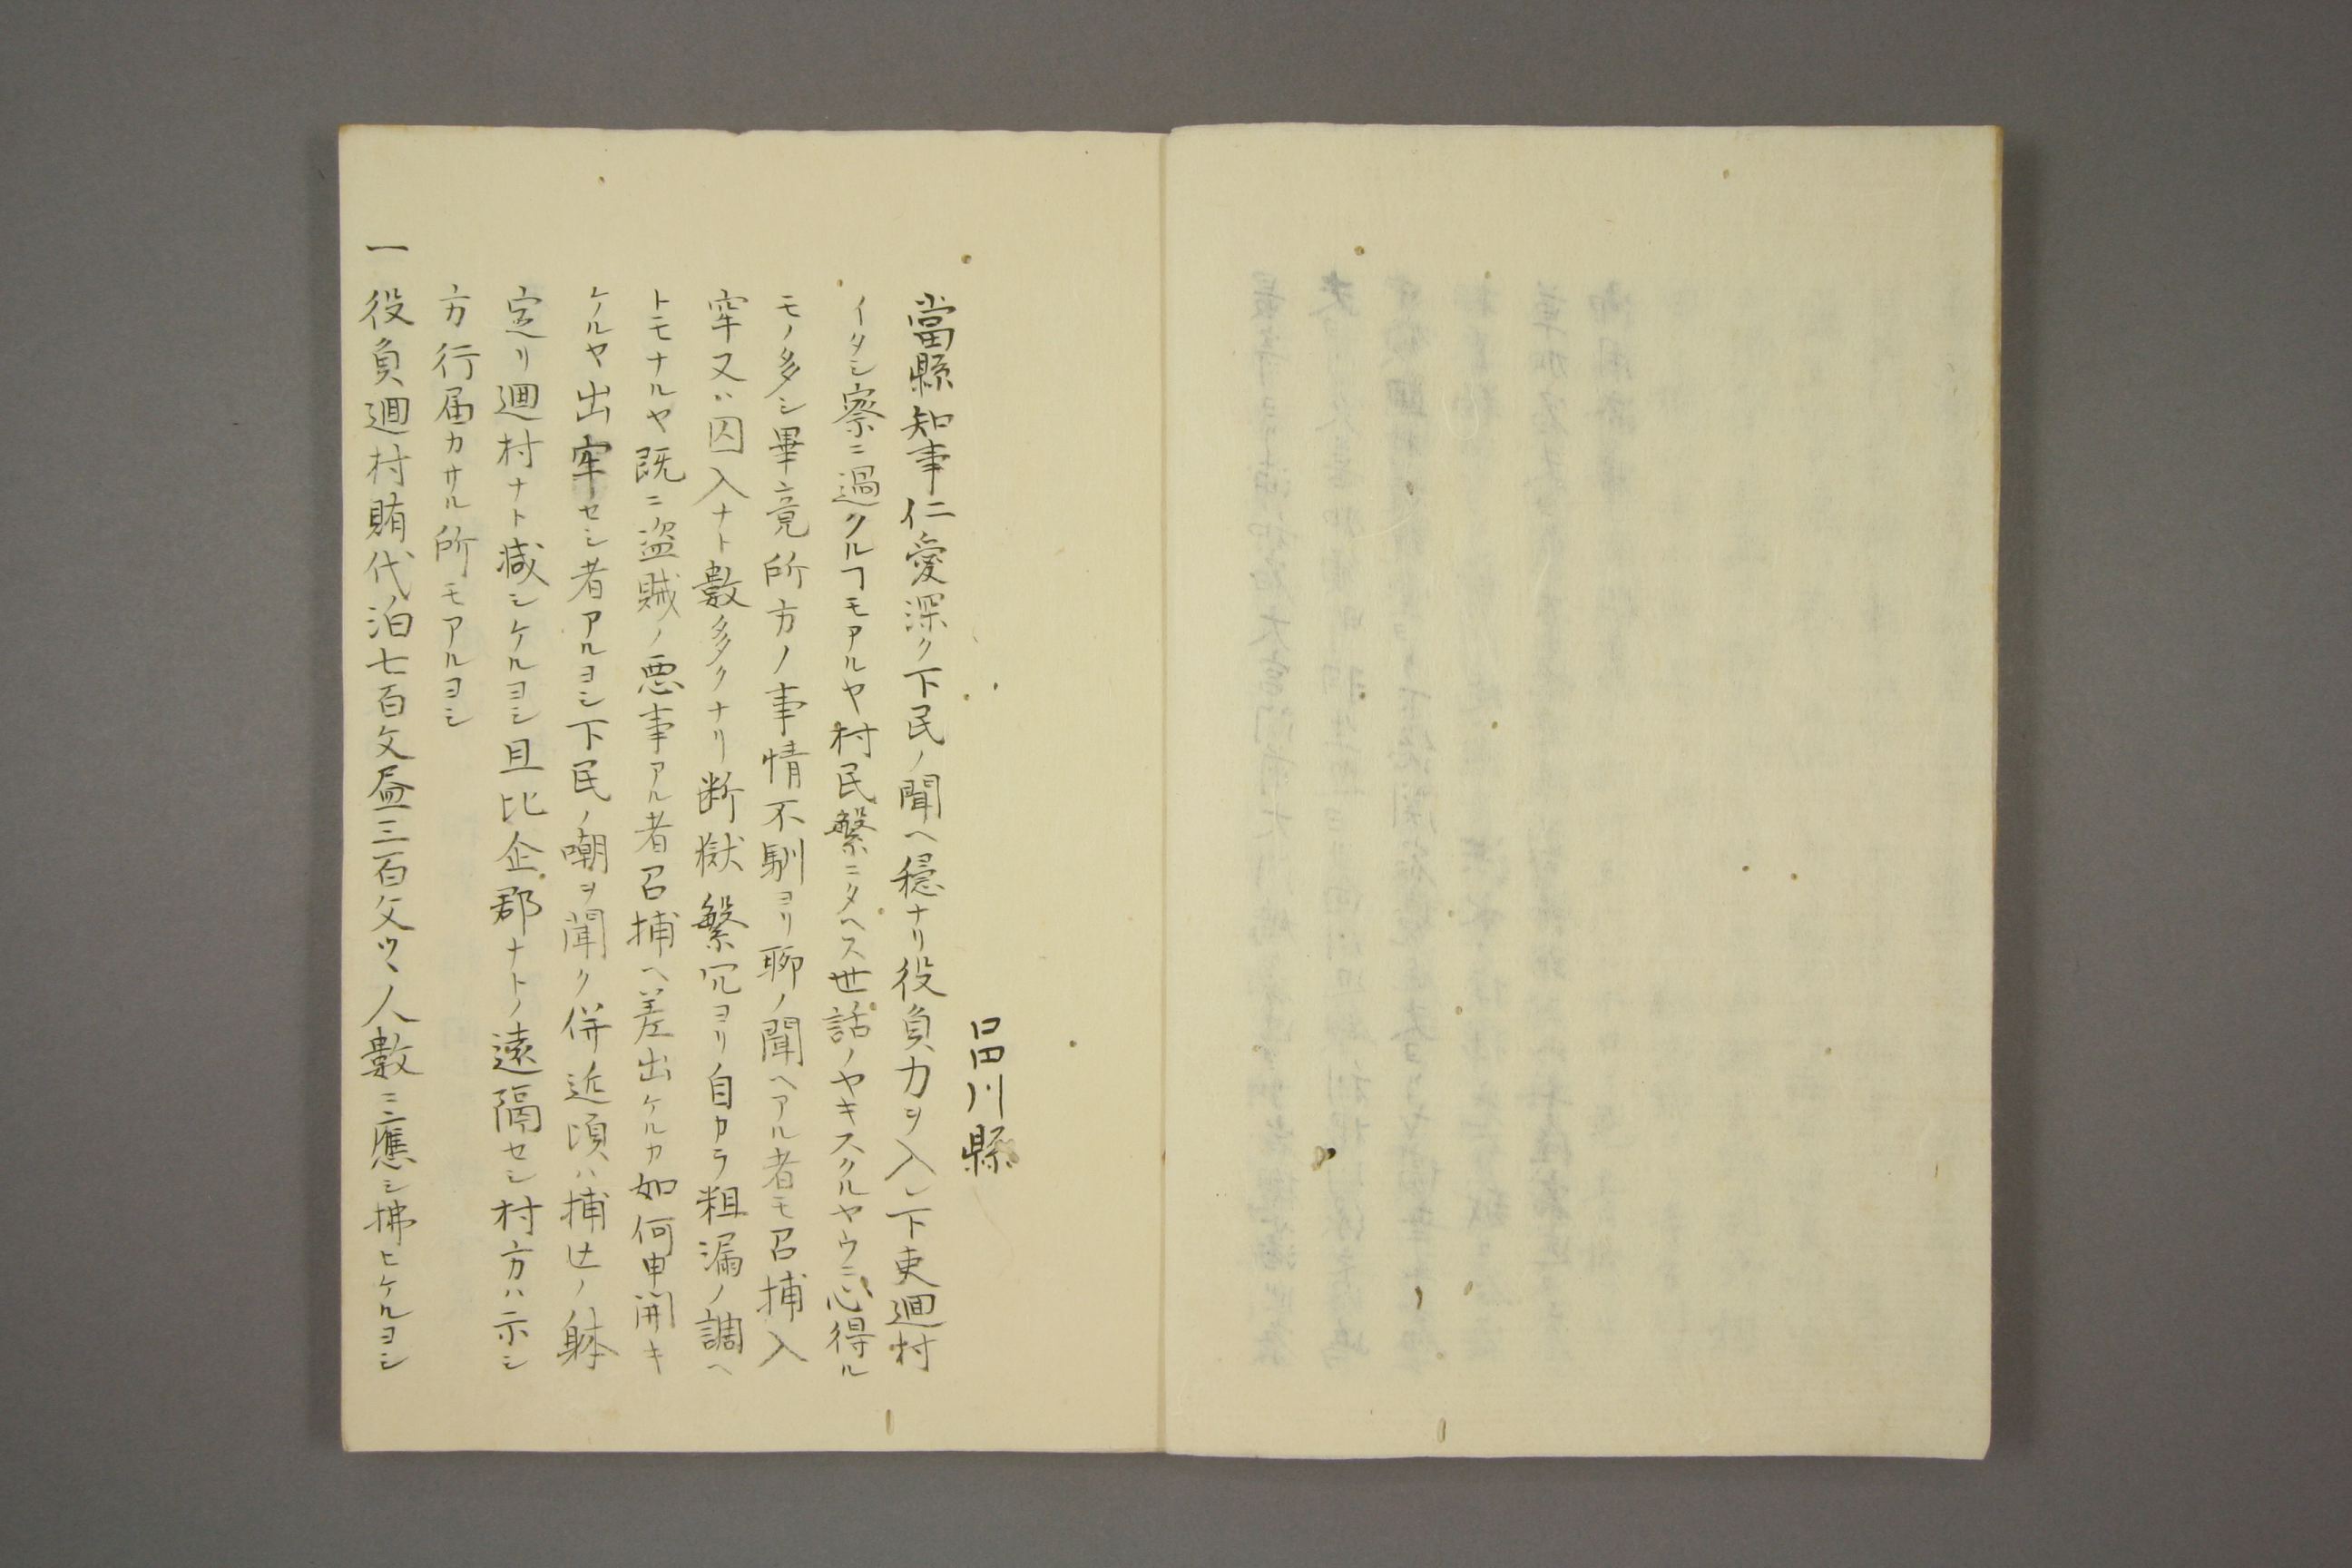 品川縣
當縣知事仁愛深ク下民ノ聞ヘ穏ナリ役貟力ヲ入レ下吏廻村
イタシ察ニ過クルヿモアルヤ村民繁ニタヘス世話ノヤキスクルヤウニ心得ル
モノ多シ畢竟所方ノ事情不馴ヨリ聊ノ聞ヘアル者モ召捕入
牢又ハ囚入ナト數多クナリ断獄繁冗ヨリ自カラ粗漏ノ調ヘ
トモナルヤ既ニ盗賊ノ悪事アル者召捕ヘ差出ケルカ如何申開キ
ケルヤ出牢セシ者アルヨシ下民ノ嘲ヲ聞ク併近頃ハ捕亡ノ躰
定リ廻村ナト減シケルヨシ且比企郡ナトノ遠隔セシ村方ハ示シ
方行届カサル所モアルヨシ
一役貟廻村賄代泊七百文昼三百文ツヽノ人數ニ應シ拂ヒケルヨシ